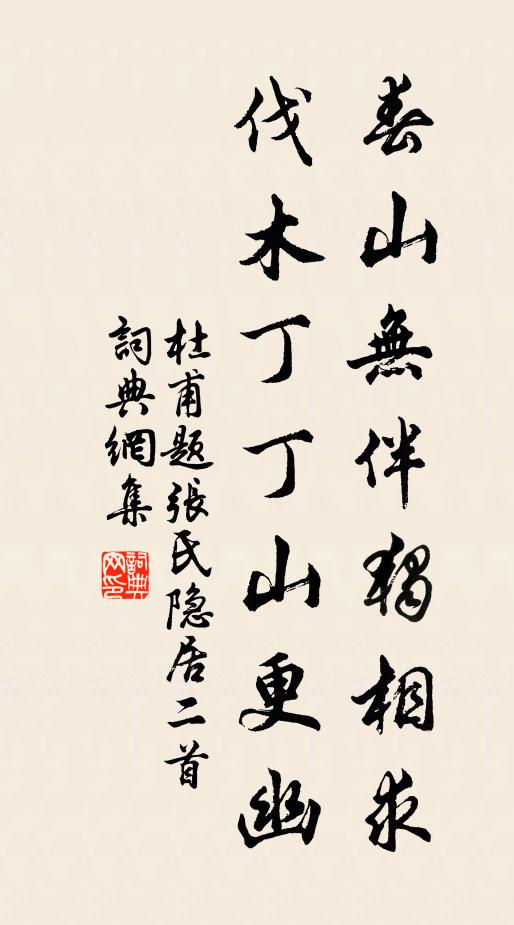 春山無伴獨相求
伐木丁丁山更幽
杜甫题張氏隐居二首
詞典網集
詞典網印